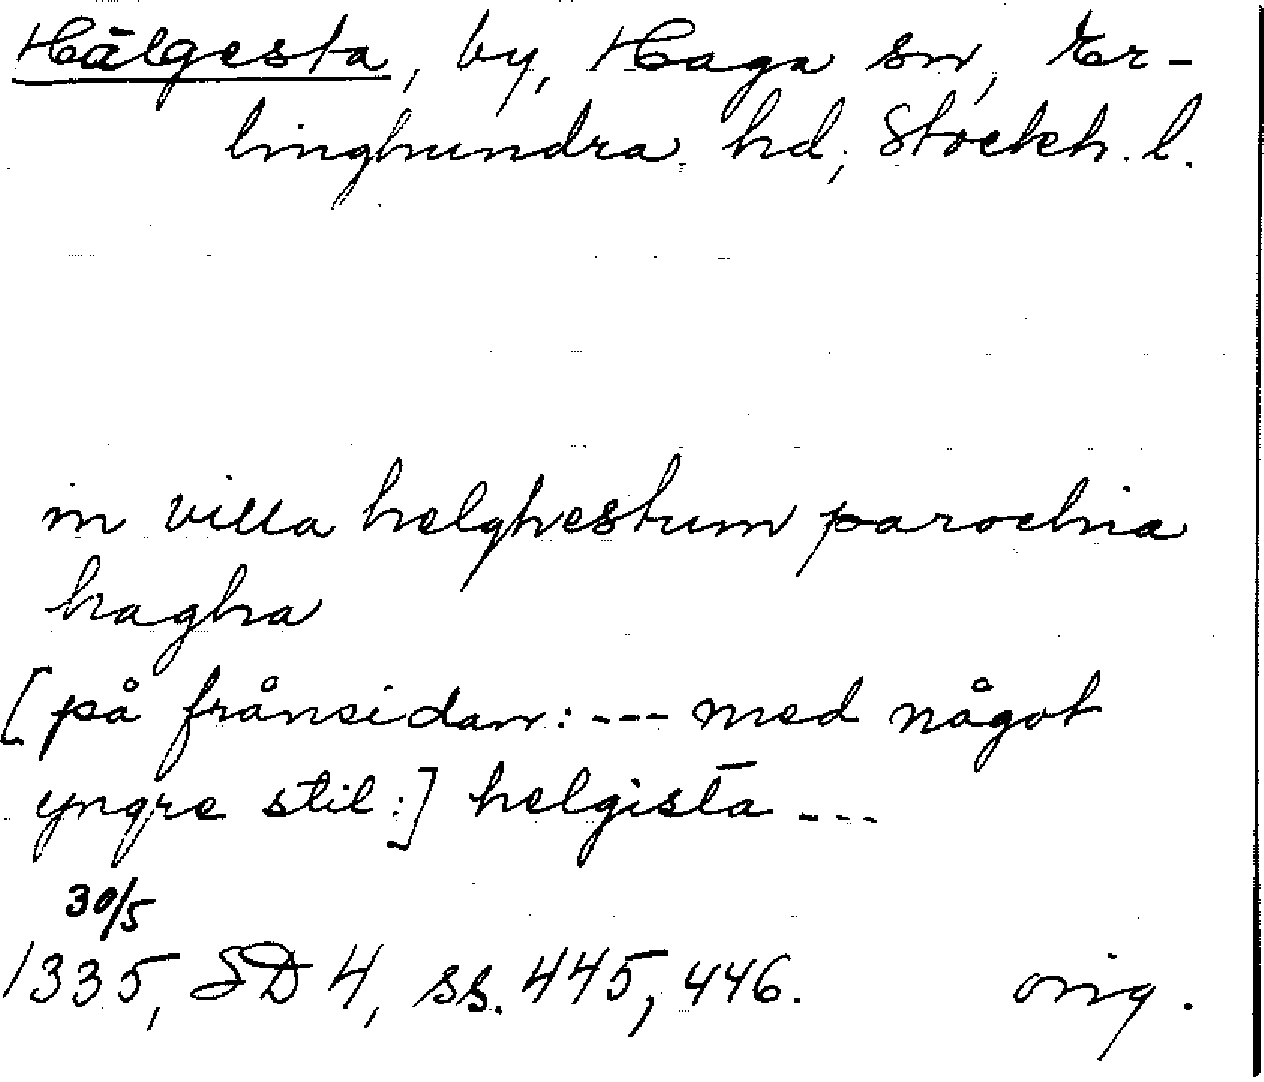 Hälgesta, by, Haga sn, Er-
linghundra hd, Stockh. l.
in villa helghestum parochia
haghra
[på frånsidan: --- med något
yngre stil:] helgista ---
30/5
1335, SD 4, ss. 445, 446. orig.